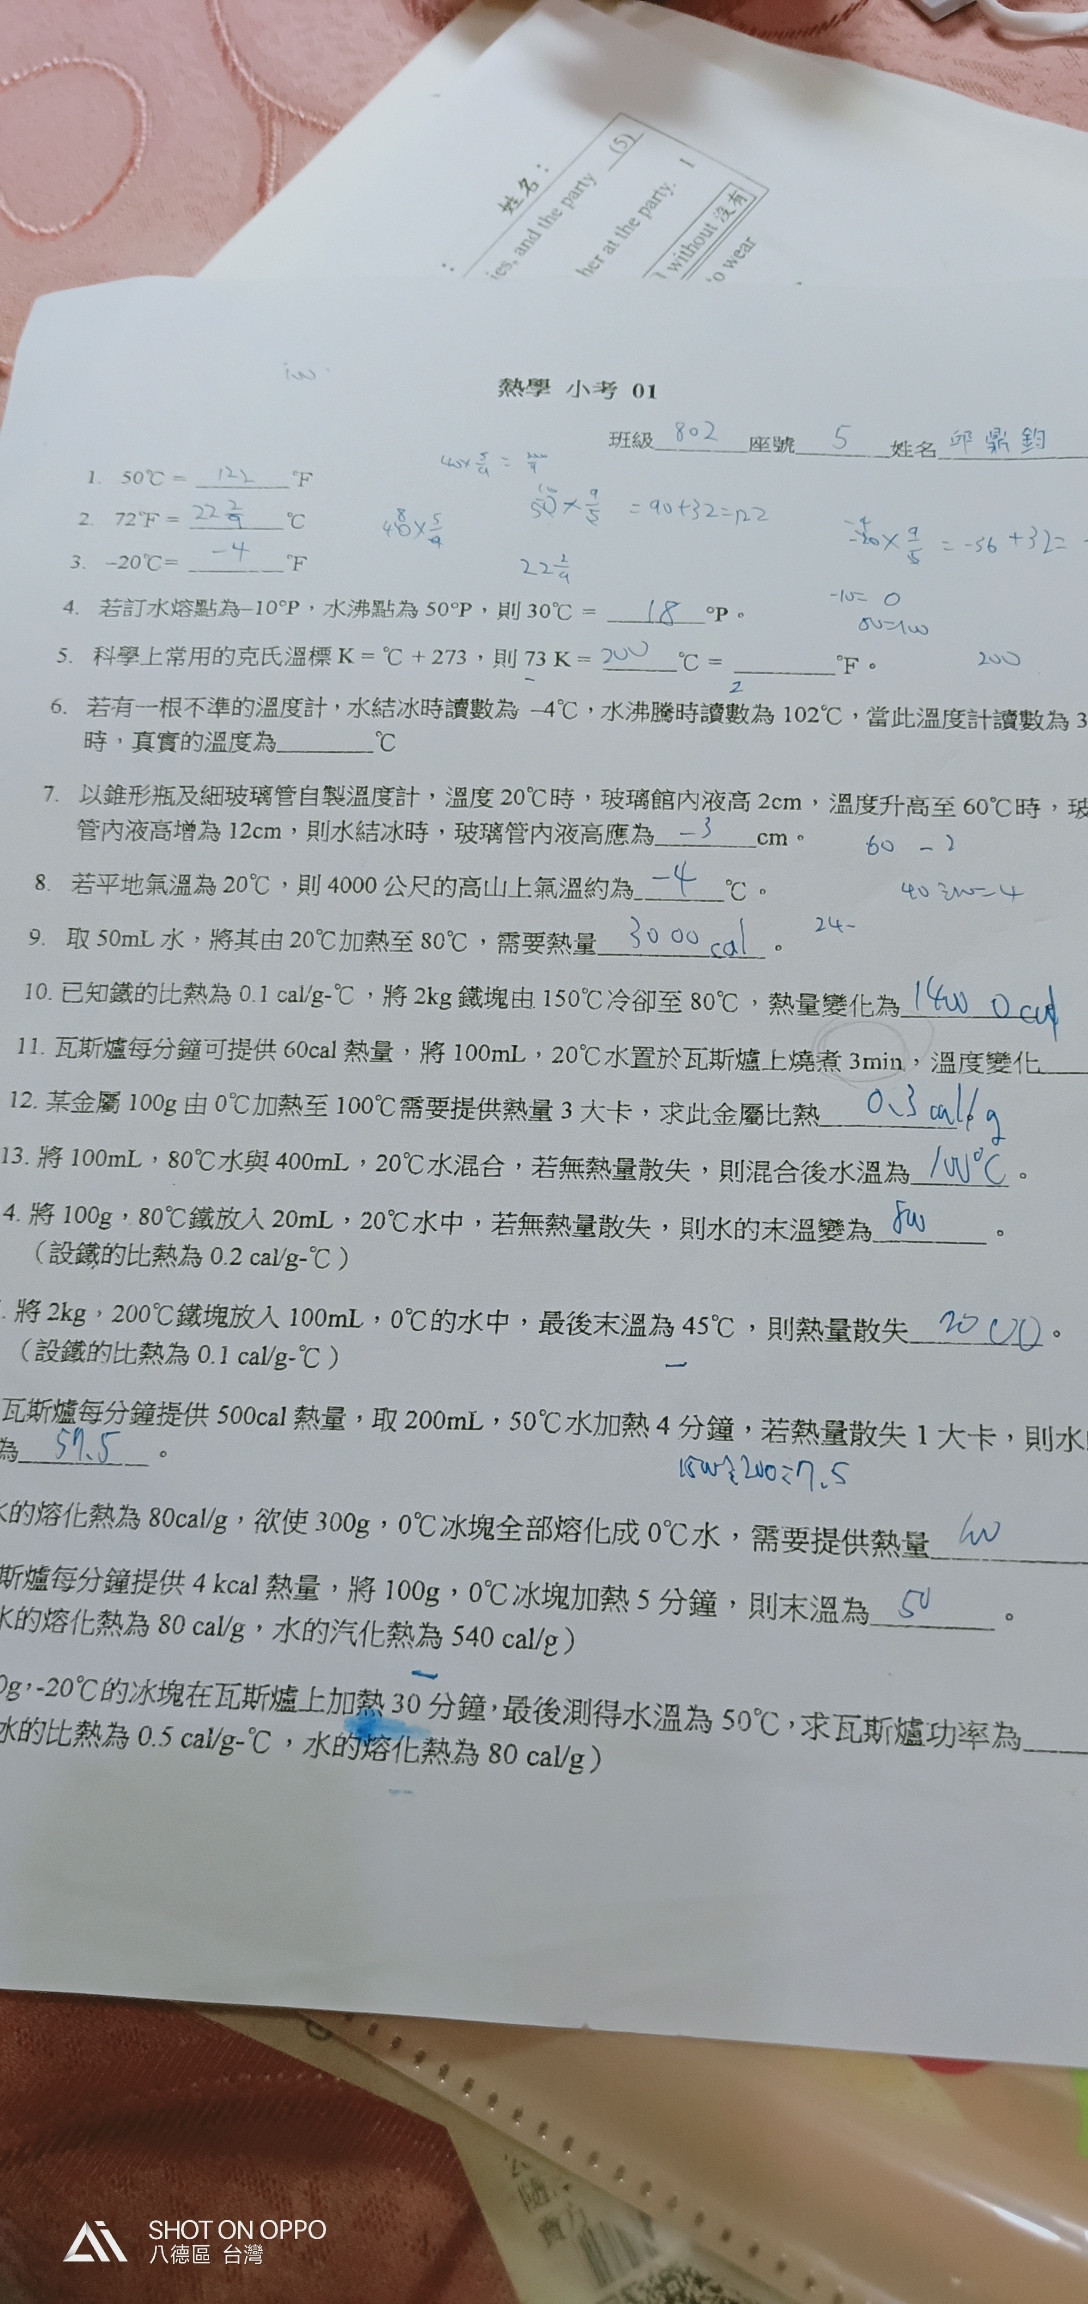 姓名：
(5)
ies, and the party
her at the party.
I
without 沒有
o wear
熱學 小考 01
班級 802 座號 5 姓名 邱鼎鈞
1. 50℃ = 122 ℉
2. 72℉ = 22 2/9 ℃
3. -20℃= -4 ℉
50×9/5 = 90+32=122
48×5/9
22 2/9
×9/5 = -36 +32=
4. 若訂水熔點為–10°P，水沸點為 50°P，則 30℃ = 18 °P。
-10= 0
50=100
5. 科學上常用的克氏溫標 K = ℃ + 273，則 73 K = 200 ℃ = ______℉。
200
2
6. 若有一根不準的溫度計，水結冰時讀數為 –4℃，水沸騰時讀數為 102℃，當此溫度計讀數為 3
時，真實的溫度為______℃
7. 以錐形瓶及細玻璃管自製溫度計，溫度 20℃時，玻璃館內液高 2cm，溫度升高至 60℃時，玻
管內液高增為 12cm，則水結冰時，玻璃管內液高應為 -3 cm。
60 - 2
8. 若平地氣溫為 20℃，則 4000 公尺的高山上氣溫約為 -4 ℃。
24-
9. 取 50mL 水，將其由 20℃加熱至 80℃，需要熱量 3000 cal 。
10. 已知鐵的比熱為 0.1 cal/g-℃，將 2kg 鐵塊由 150℃冷卻至 80℃，熱量變化為 14000 cal
11. 瓦斯爐每分鐘可提供 60cal 熱量，將 100mL，20℃水置於瓦斯爐上燒煮 3min，溫度變化
12. 某金屬 100g 由 0℃加熱至 100℃需要提供熱量 3 大卡，求此金屬比熱 0.3 cal/g
13. 將 100mL，80℃水與 400mL，20℃水混合，若無熱量散失，則混合後水溫為 100℃ 。
4. 將 100g，80℃鐵放入 20mL，20℃水中，若無熱量散失，則水的末溫變為 800 。
（設鐵的比熱為 0.2 cal/g-℃）
. 將 2kg，200℃鐵塊放入 100mL，0℃的水中，最後末溫為 45℃，則熱量散失 2000 。
（設鐵的比熱為 0.1 cal/g-℃）
瓦斯爐每分鐘提供 500cal 熱量，取 200mL，50℃水加熱 4 分鐘，若熱量散失 1 大卡，則水
為 57.5 。
1500÷200=7.5
的熔化熱為 80cal/g，欲使 300g，0℃冰塊全部熔化成 0℃水，需要提供熱量
斯爐每分鐘提供 4 kcal 熱量，將 100g，0℃冰塊加熱 5 分鐘，則末溫為 50 。
水的熔化熱為 80 cal/g，水的汽化熱為 540 cal/g）
0g，-20℃的冰塊在瓦斯爐上加熱 30 分鐘，最後測得水溫為 50℃，求瓦斯爐功率為
水的比熱為 0.5 cal/g-℃，水的熔化熱為 80 cal/g）
SHOT ON OPPO
八德區 台灣